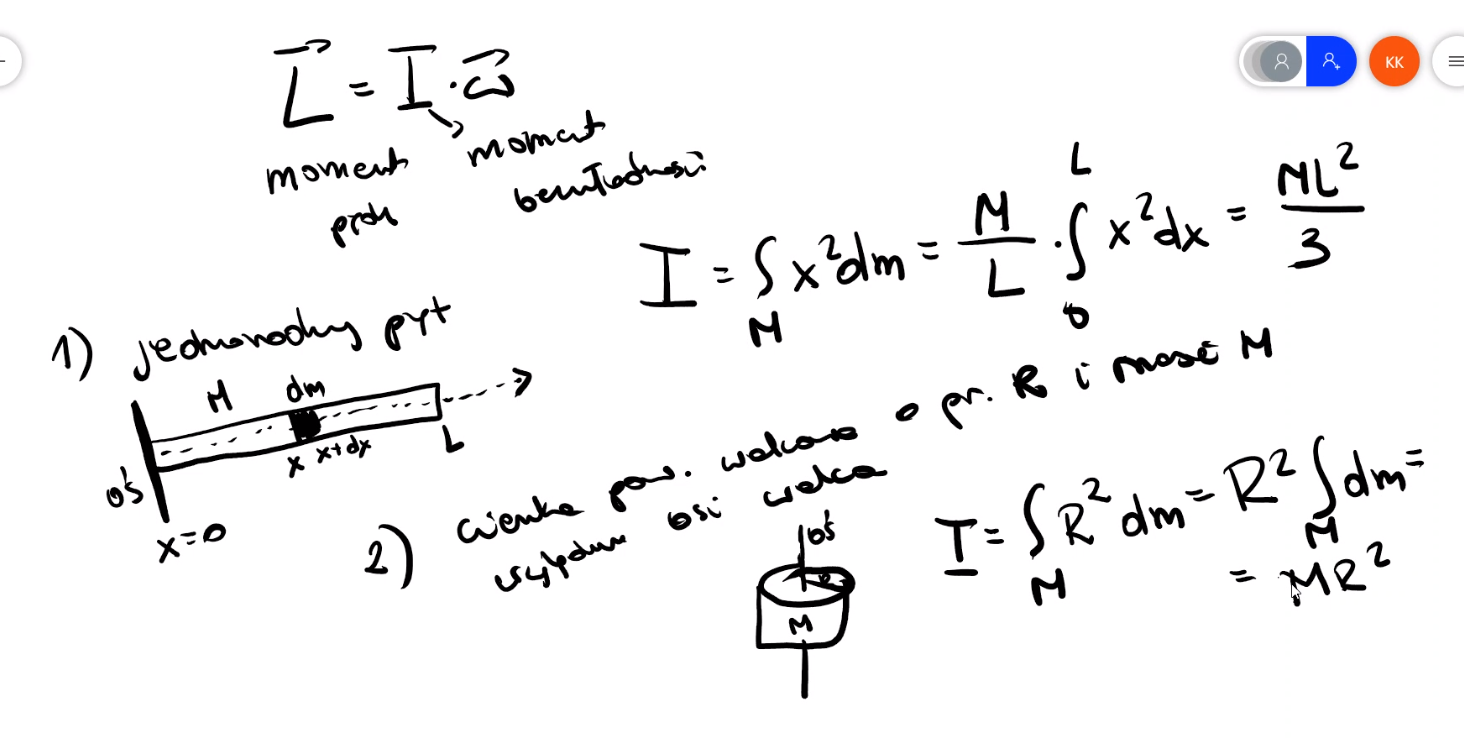 L = I · ω
moment pędu
moment bezwładności
I = ∫ x²dm = M/L · ∫ x²dx = ML²/3
M
L
0
1) jednorodny pręt
M dm
x x+dx L
oś
x=0
2) cienka pow. walcowa o pr. R i masie M
względem osi walca
oś
R
M
I = ∫ R² dm = R² ∫ dm =
M M
= MR²
KK